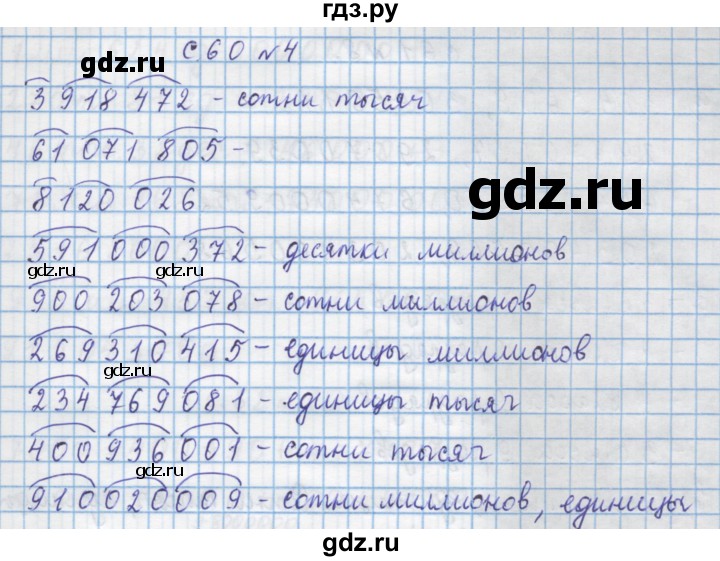 гдз.ру
с. 60 №4
gdz.ru
3 918 472 - сотни тысяч
61 071 805 -
gdz.ru
8 120 026
591 000 372 - десятки миллионов
gdz.ru gdz.ru
900 203 078 - сотни миллионов
269 310 415 - единицы миллионов
gdz.ru
234 769 081 - единицы тысяч
400 936 001 - сотни тысяч
gdz.ru
910 020 009 - сотни миллионов, единицы
gdz.ru